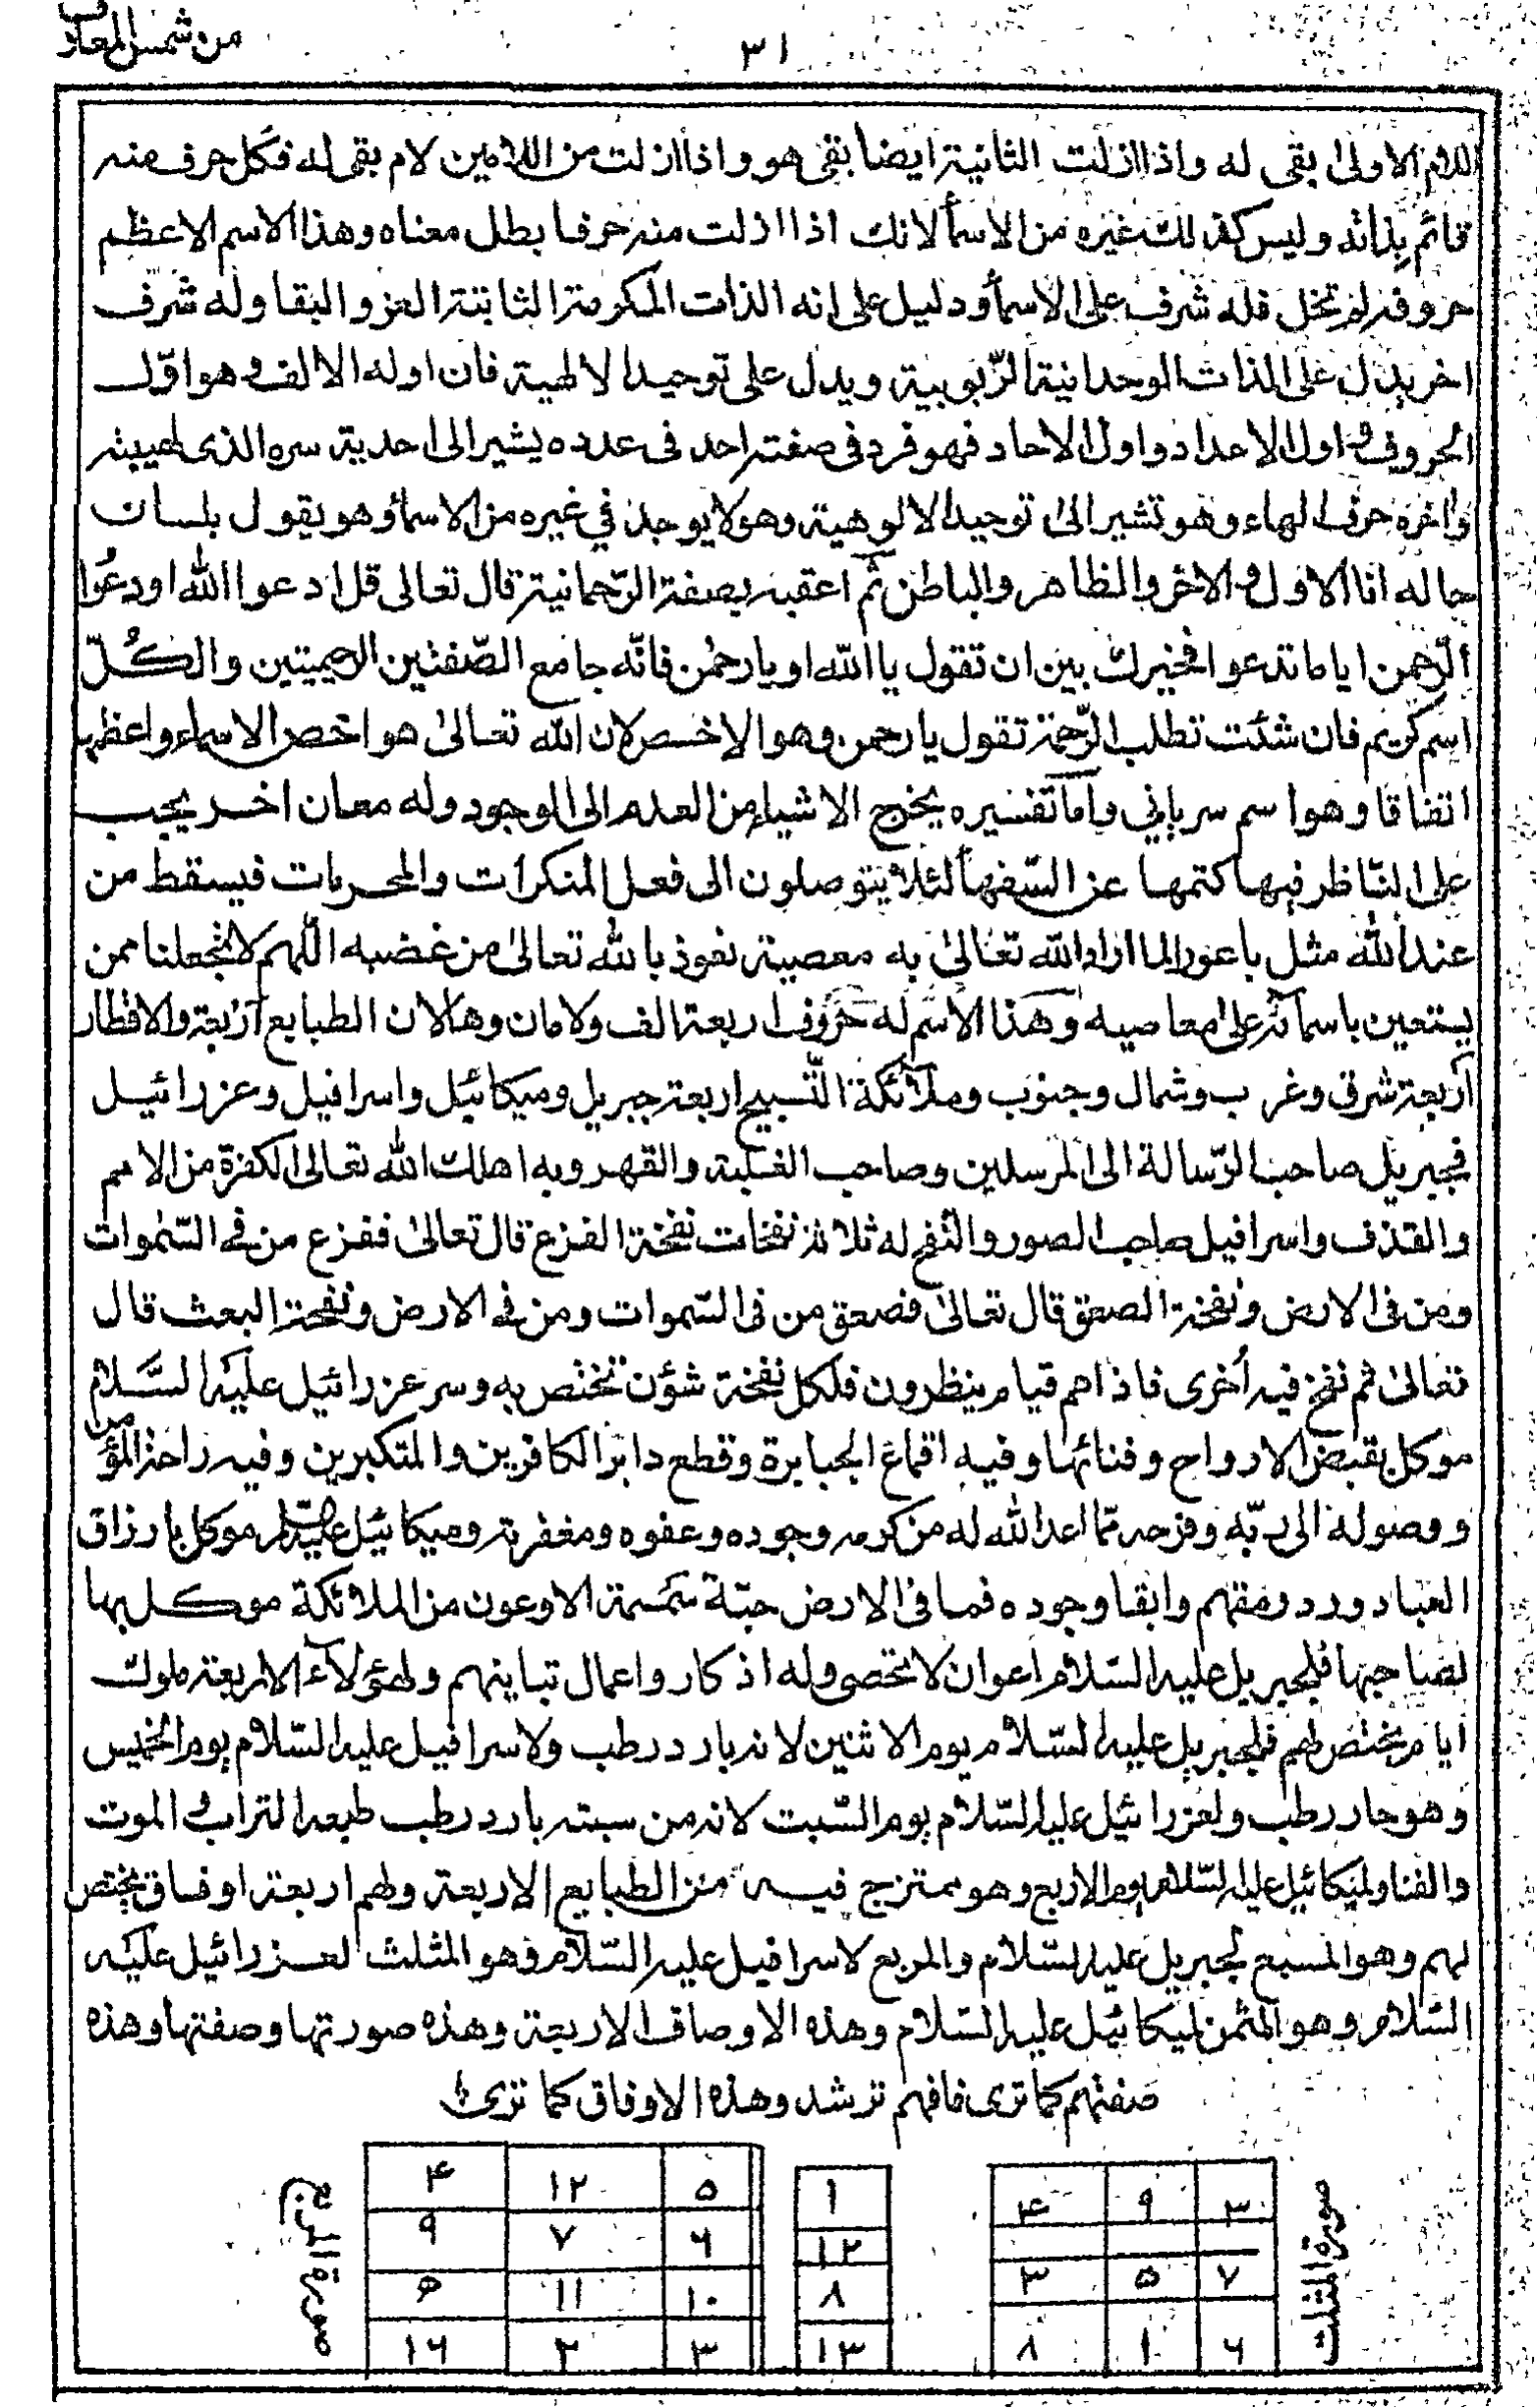 من شمس المعارف
٣١
اللام الاولى بقى له واذا ازلت الثانية ايضا بقى هو واذا ازلت من اللامين لام بقى له فكل حرف منه
قائم بذاته وليس كذلك غيره من الاسمأ لانك اذا ازلت منه حرفا بطل معناه وهذا الاسم الاعظم
حروفه لم تخل فله شرف على الاسمأ ودليل على انه الذات المكرمة الثابتة العز والبقا وله شرف
اخر يدل على الذات الوحدانية الرّبوبية ويدل على توحيد الالهية فان اوله الالف وهو اوّل
الحروف و اول الاعداد واول الاحاد فهو فرد فى صفته احد فى عدده يشير الى احدية سره الذى
واخره حرف الهاء وهو تشير الى توحيد الالوهية وهو لا يوجد في غيره من الاسمأ وهو يقول بلسان
حاله انا الاول و الاخر والظاهر والباطن ثم اعقبه بصفة الرّحمانية قال تعالى قل ادعوا الله اودعُوا
الرّحمن اياما تدعوا فخيرك بين ان تقول يا الله او يا رحمٰن فانّه جامع الصّفتين الرحيميتين والكُلّ
اسم كريم فان شئت تطلب الرّحمة تقول يا رحمن وهو الاخص لان الله تعالىٰ هو اخص الاسماء واعظمها
اتفاقا وهو اسم سرياني واما تفسيره يخرج الاشياء من العدم الى الوجود وله معان اخر يجب
على النّاظر فيها كتمها عن السّفهأ لئلا يتوصلون الى فعل المنكرات والمحرمات فيسقط من
عند الله مثل باعور الما اراد الله تعالىٰ به معصية نعوذ بالله تعالىٰ من غضبه اللّهم لا تجعلنا ممن
يستعين باسمآئه على معاصيه وهذا الاسم له حروف اربعة الف ولامان وها لان الطبايع اربعة والاقطار
اربعة شرق وغرب وشمال وجنوب وملآئكة التّسبيح اربعة جبريل وميكائيل واسرافيل وعزرائيل
فجبريل صاحب الرّسالة الى المرسلين وصاحب الغلبة والقهر وبه اهلك الله تعالى الكفرة من الامم
والقذف واسرافيل صاحب الصور والنفخ له ثلاثة نفخات نفخة الفزع قال تعالىٰ ففزع من فى السّموات
ومن فى الارض ونفخة الصعق قال تعالىٰ فصعق من فى السّموات ومن فى الارض ونفخة البعث قال
تعالىٰ ثم نفخ فيه اُخرى فاذا هم قيام ينظرون فلكل نفخة شؤن تختص به وسر عزرائيل عليه السَّلام
موكل بقبض الارواح وفنائها وفيه اقماع الجبابرة وقطع دابر الكافرين والمتكبرين وفيه راحة المؤمن
ووصوله الى ربّه وفرحه ممّا اعد الله له من كرمه وجوده وعفوه ومغفرته وميكائيل عليه السّلام موكل بارزاق
العباد ورد رمقهم وابقا وجوده فما فى الارض حبّة سمسمة الا وعون من الملائكة موكل بها
لصاحبها فلجبريل عليه السّلام اعوان لا تحصى وله اذكار واعمال تباينهم ولهؤلآء الاربعة ملوك
ايام يختص لهم فلجبريل عليه السّلام يوم الاثنين لانه بارد رطب ولاسرافيل عليه السّلام يوم الخميس
وهو حار رطب ولعزرائيل عليه السّلام يوم السّبت لانه من سبته بارد رطب طبعه التراب و الموت
والفنا ولميكائيل عليه السّلام يوم الاربع وهو ممتزج فيه من الطبايع الاربعة ولهم اربعة اوفاق يختص
لهم وهو المسبع لجبريل عليه السّلام والمربع لاسرافيل عليه السّلام وهو المثلث لعزرائيل عليه
السّلام وهو المثمن لميكائيل عليه السّلام وهذه الاوصاف الاربعة وهذه صورتها وصفتها وهذه
صفتهم كما ترى فافهم ترشد وهذه الاوفاق كما ترى
صورة المثلث
٣ ٩ ۴
٧ ۵ ٣
۶ ١ ٨
١
١٢
٨
١٣
۵ ١٢ ۴
۶ ٧ ٩
١٠ ١١
٣ ٢ ١۶
صورة المربع